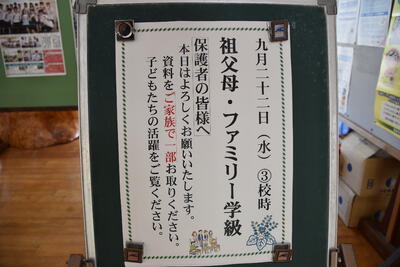 九月二十二日（水）③校時
祖父母・ファミリー学級
保護者の皆様へ
本日はよろしくお願いいたします。
資料をご家族で一部お取りください。
子どもたちの活躍をご覧ください。